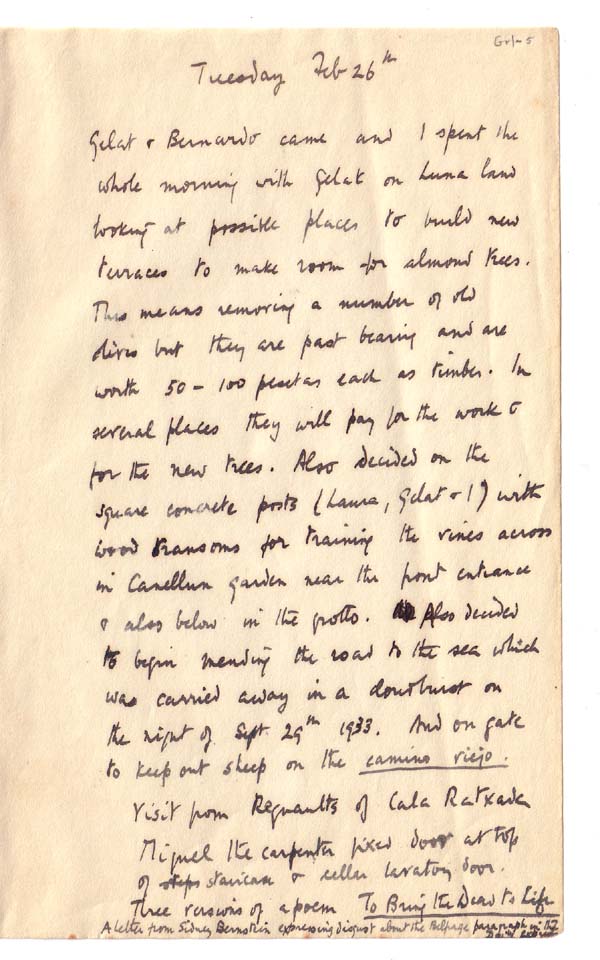 Grl-5
Tuesday Feb 26th
Gelat & Bernardo came and I spent the
whole morning with Gelat on Luna land
looking at possible places to build new
terraces to make room for almond trees.
This means removing a number of old
olives but they are past bearing and are
worth 50 - 100 pesetas each as timber. In
several places they will pay for the work &
for the new trees. Also decided on the
square concrete posts (Laura, Gelat & I) with
wood transoms for training the vines across
in Canellun garden near the front entrance
& also below in the grotto. Also decided
to begin mending the road to the sea which
was carried away in a cloudburst on
the night of Sept 29th 1933. And on gate
to keep out sheep on the camino viejo.
Visit from Regnaults of Cala Ratxada
Miguel the carpenter fixed door at top
of steps staircase & cellar lavatory door.
Three versions of a poem To Bring the Dead to Life
A letter from Sidney Bernstein expressing disgust about the Belpage paragraph in the
Daily Express